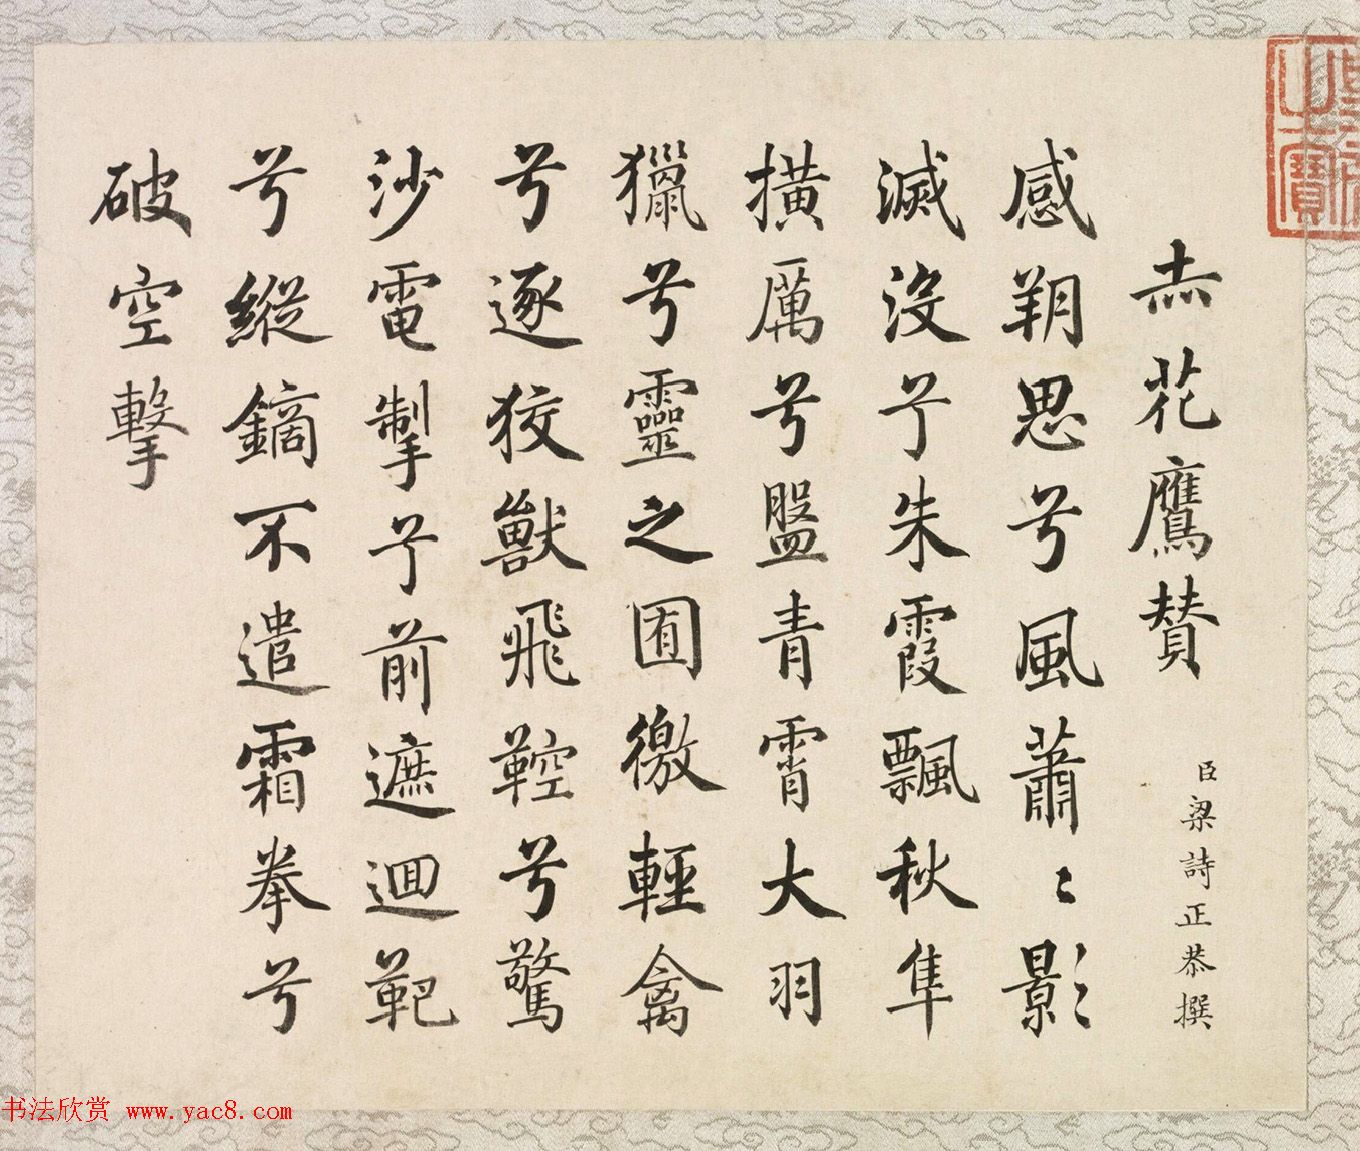 赤花鷹賛 臣梁詩正恭撰
感朔思兮風蕭〻影
滅沒兮朱霞飄秋隼
撗厲兮盤青霄大羽
獵兮靈之囿徼輕禽
兮逐狡獸飛鞚兮驚
沙電掣兮前遮迴靶
兮縱鏑不遣霜拳兮
破空擊
之寶
书法欣赏 www.yac8.com